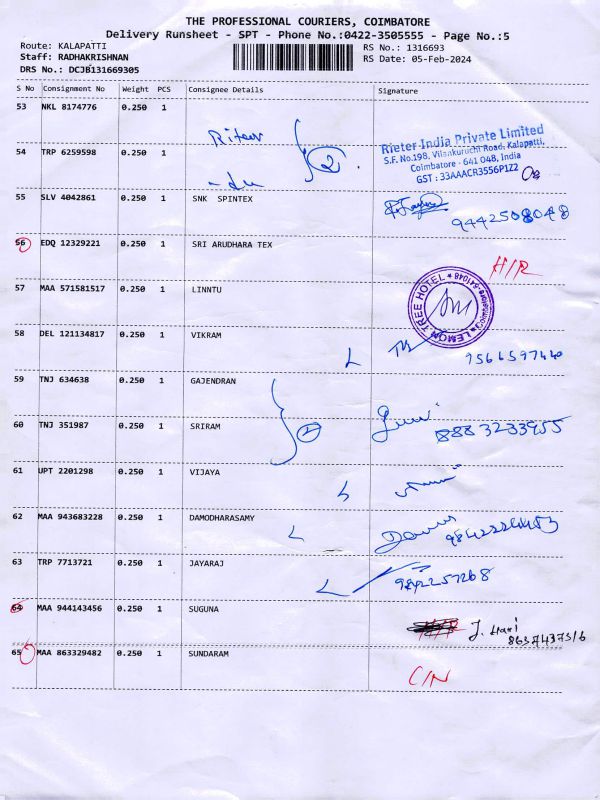 THE PROFESSIONAL COURIERS, COIMBATORE
Delivery Runsheet - SPT - Phone No.:0422-3505555 - Page No.:5
Route: KALAPATTI RS No.: 1316693
Staff: RADHAKRISHNAN RS Date: 05-Feb-2024
DRS No.: DCJB131669305
S No Consignment No Weight PCS Consignee Details Signature
53 NKL 8174776 0.250 1
Rieter India Private Limited
S.F. No.198, Vilankuruchi Road, Kalapatti,
Coimbatore - 641 048, India
GST : 33AAACR3556P1Z2
54 TRP 6259598 0.250 1 2
55 SLV 4042861 0.250 1 SNK SPINTEX
9442508048
56 EDQ 12329221 0.250 1 SRI ARUDHARA TEX
H/R
57 MAA 571581517 0.250 1 LINNTU
LEMON TREE HOTEL * COIMBATORE-641048 *
58 DEL 121134817 0.250 1 VIKRAM
9566597440
59 TNJ 634638 0.250 1 GAJENDRAN
60 TNJ 351987 0.250 1 SRIRAM
8883233955
61 UPT 2201298 0.250 1 VIJAYA
62 MAA 943683228 0.250 1 DAMODHARASAMY
63 TRP 7713721 0.250 1 JAYARAJ
9842257268
64 MAA 944143456 0.250 1 SUGUNA
J. Hari
8637437316
65 MAA 863329482 0.250 1 SUNDARAM
C/N